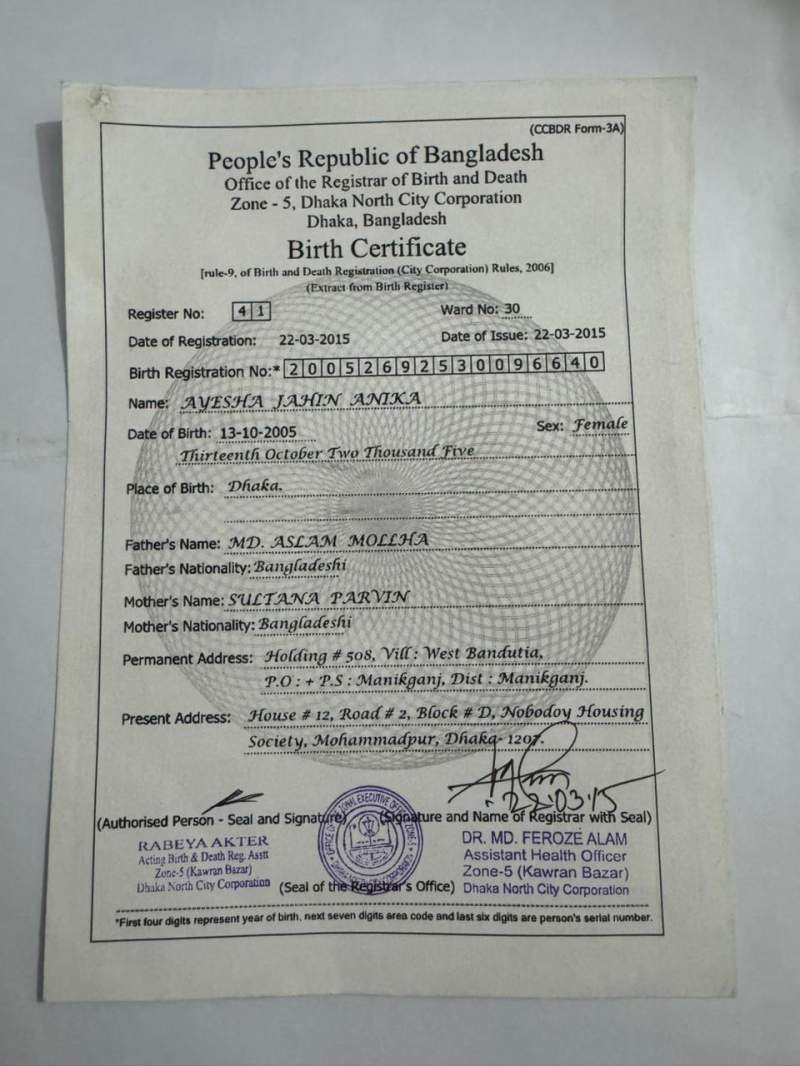 (CCBDR Form-3A)
People's Republic of Bangladesh
Office of the Registrar of Birth and Death
Zone - 5, Dhaka North City Corporation
Dhaka, Bangladesh
Birth Certificate
[rule-9, of Birth and Death Registration (City Corporation) Rules, 2006]
(Extract from Birth Register)
Register No: 41 Ward No: 30
Date of Registration: 22-03-2015 Date of Issue: 22-03-2015
Birth Registration No:* 20052692530096640
Name: AYESHA JAHIN ANIKA
Date of Birth: 13-10-2005 Sex: Female
Thirteenth October Two Thousand Five
Place of Birth: Dhaka.
Father's Name: MD. ASLAM MOLLHA
Father's Nationality: Bangladeshi
Mother's Name: SULTANA PARVIN
Mother's Nationality: Bangladeshi
Permanent Address: Holding # 508, Vill : West Bandutia,
P.O : + P.S : Manikganj, Dist : Manikganj.
Present Address: House # 12, Road # 2, Block # D, Nobodoy Housing
Society, Mohammadpur, Dhaka- 1207.
22.03.15
(Authorised Person - Seal and Signature) (Signature and Name of Registrar with Seal)
RABEYA AKTER DR. MD. FEROZE ALAM
Acting Birth & Death Reg. Asstt Assistant Health Officer
Zone-5 (Kawran Bazar) Zone-5 (Kawran Bazar)
Dhaka North City Corporation (Seal of the Registrar's Office) Dhaka North City Corporation
*First four digits represent year of birth, next seven digits area code and last six digits are person's serial number.